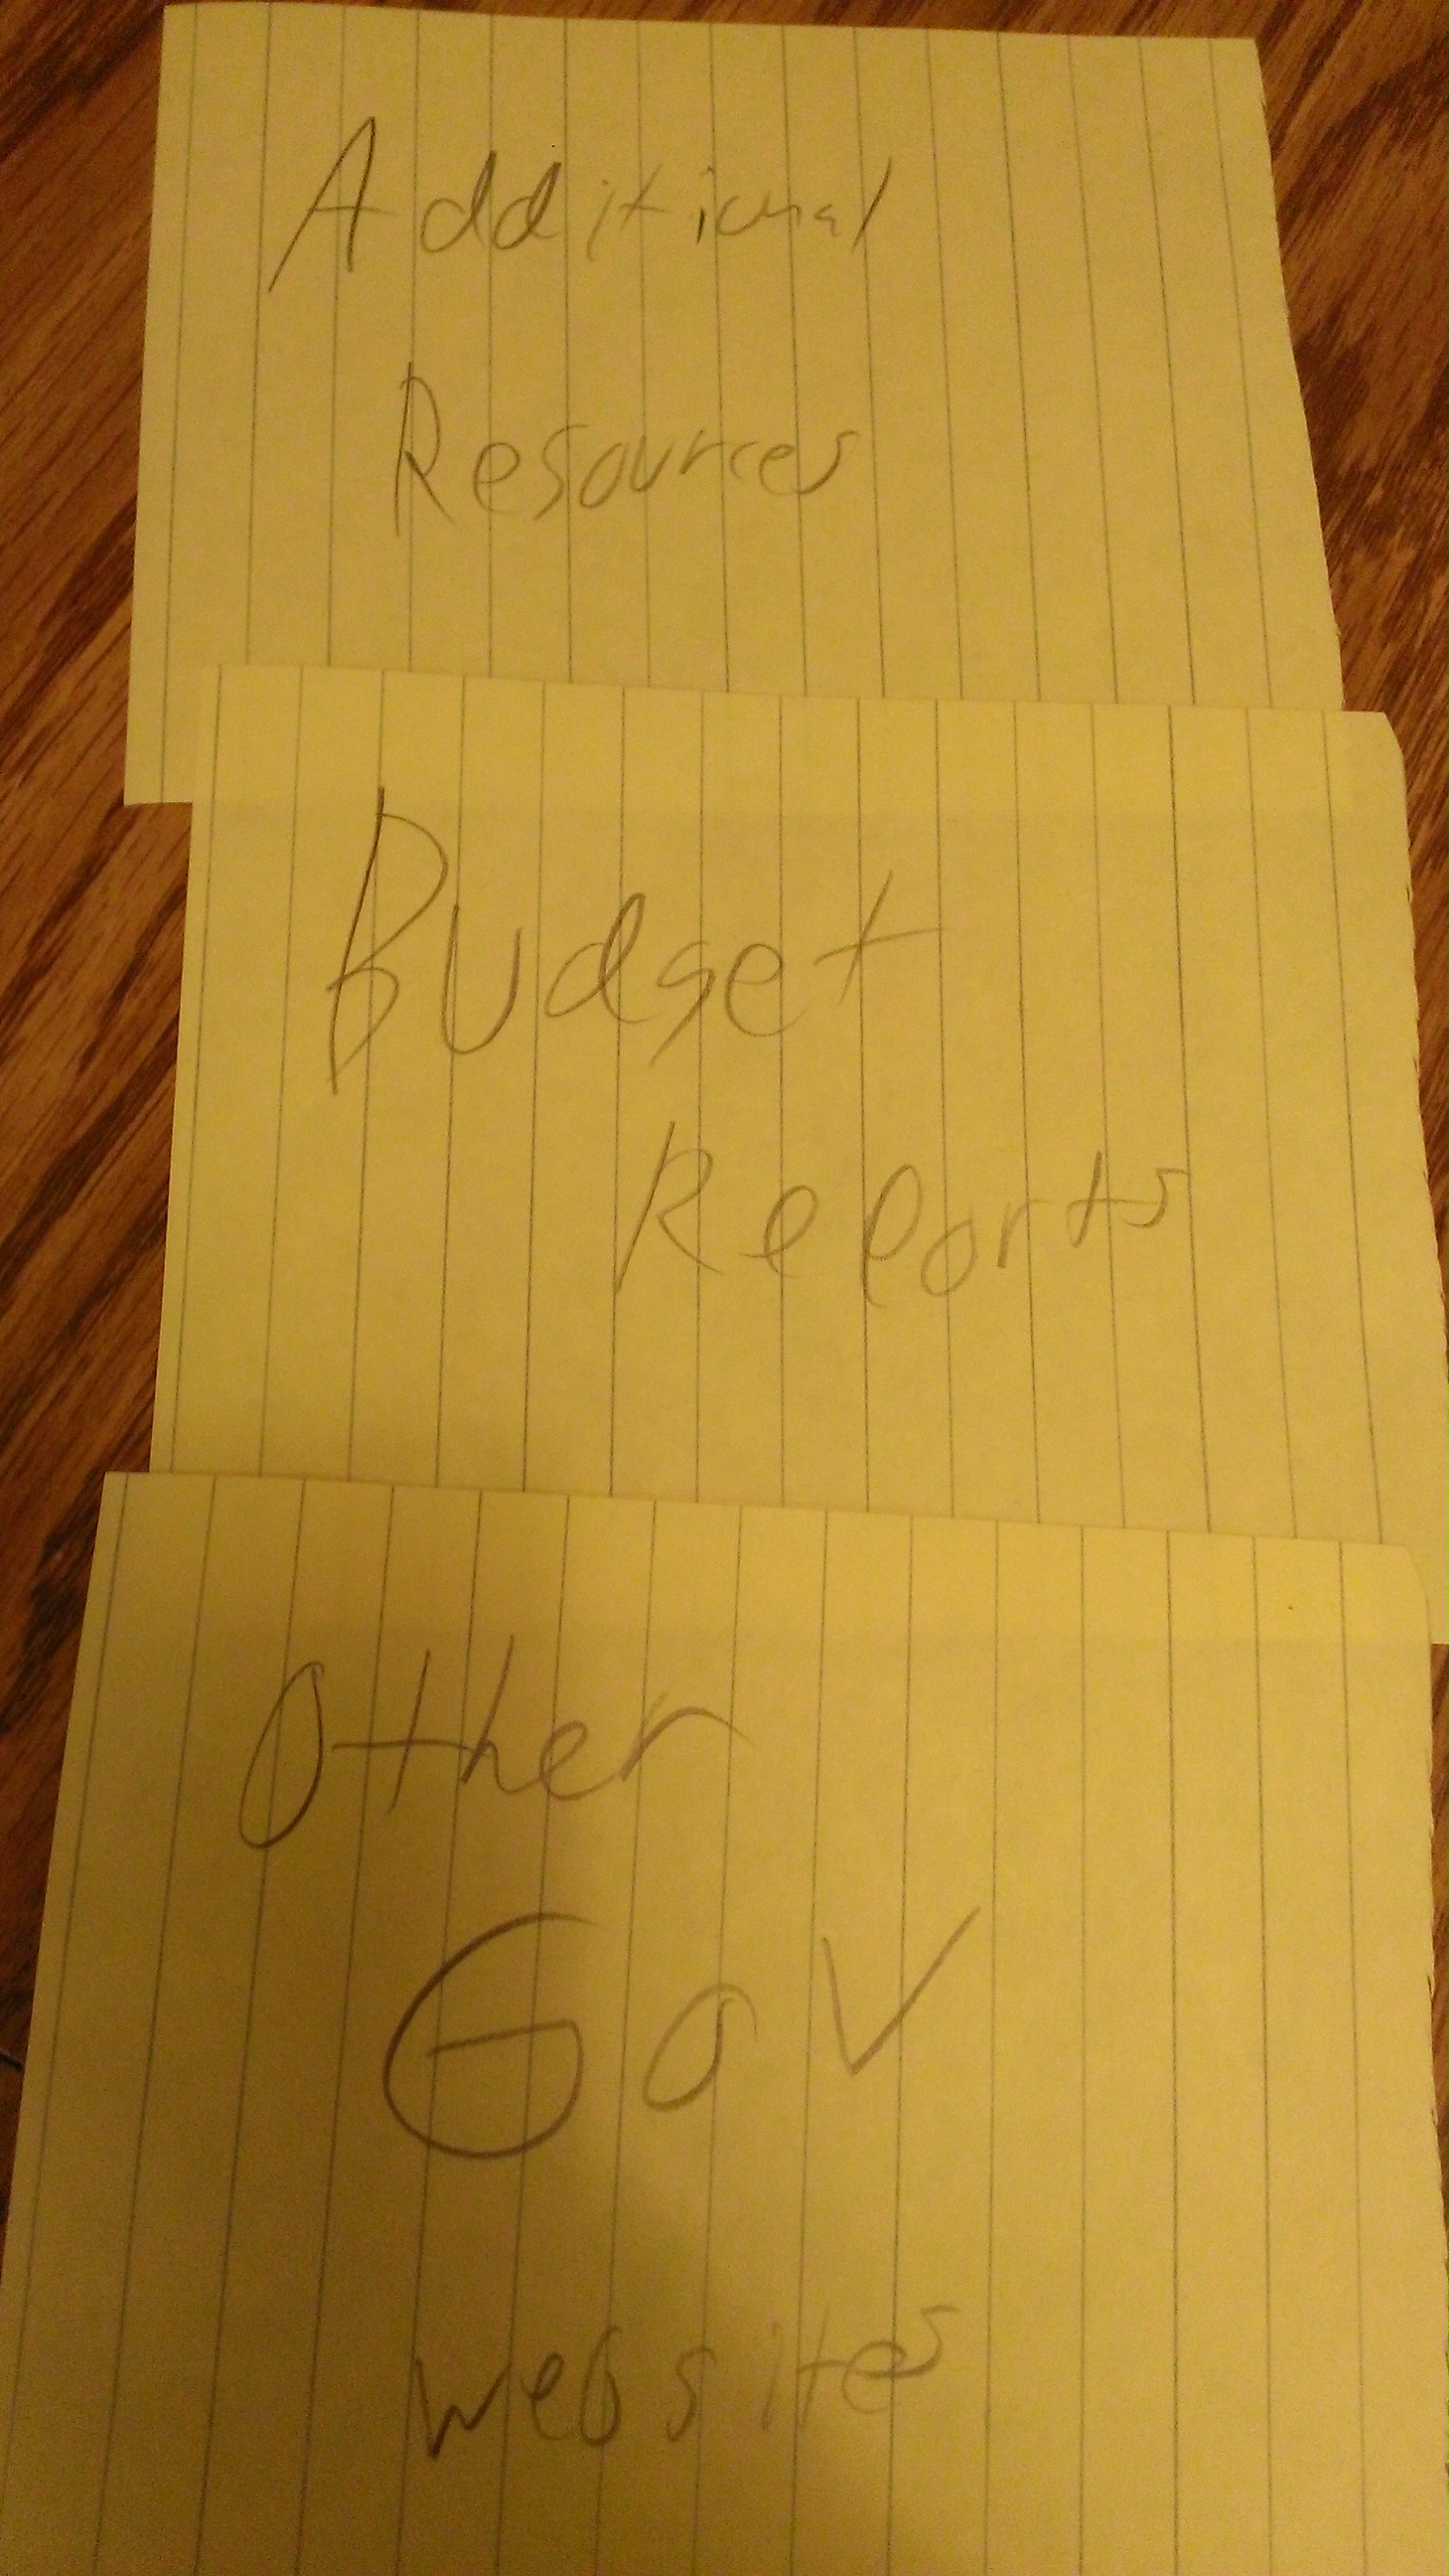 Additional
Resources
Budget
Reports
Other
Gov
websites